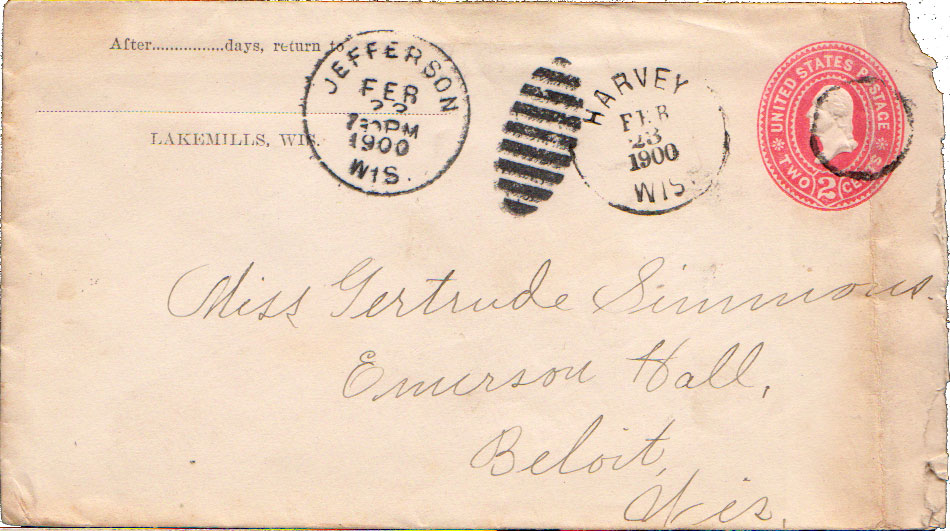 After................days, return to
LAKEMILLS, WIS.
JEFFERSON
FEB
730PM
1900
WIS.
HARVEY
FEB
23
1900
WIS.
UNITED STATES POSTAGE
TWO 2 CENTS
Miss Gertrude Simmons.
Emerson Hall,
Beloit,
Wis.